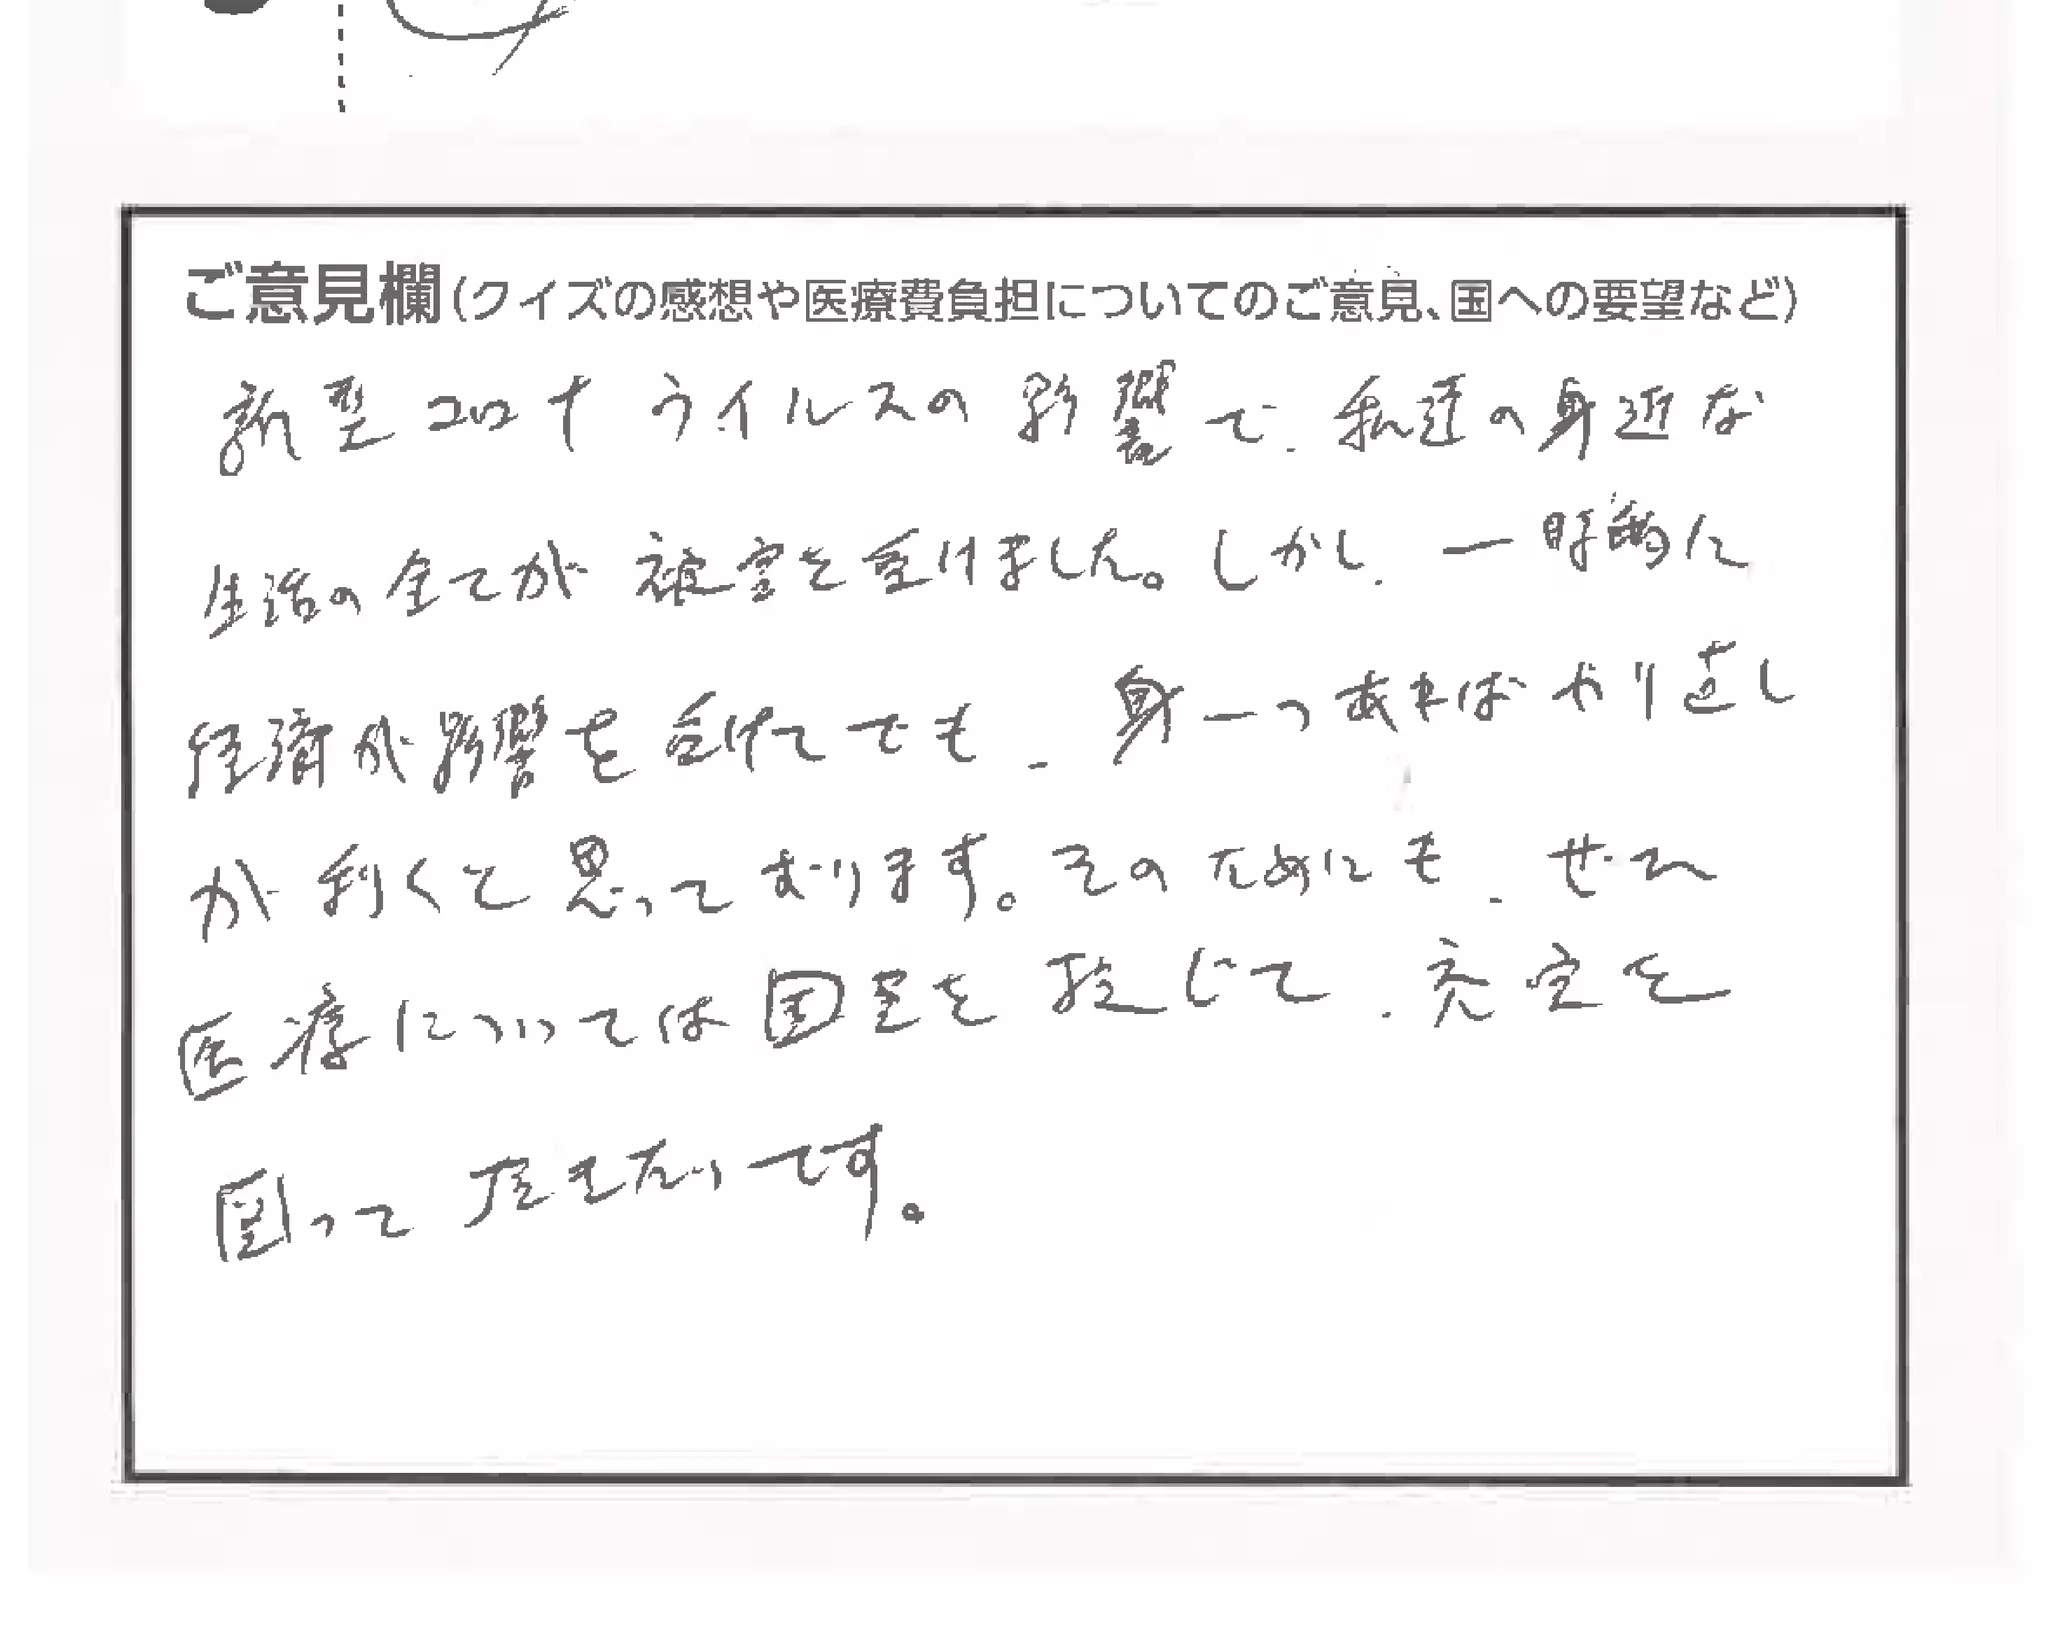 ご意見欄(クイズの感想や医療費負担についてのご意見、国への要望など)
新型コロナウイルスの影響で、私達の身近な
生活の全てが被害を受けました。しかし、一時的に
経済が影響を受けてでも、身一つあればやり直し
が利くと思っております。そのためにも、ぜひ
医療については国を投じて、充実を
図って頂きたいです。